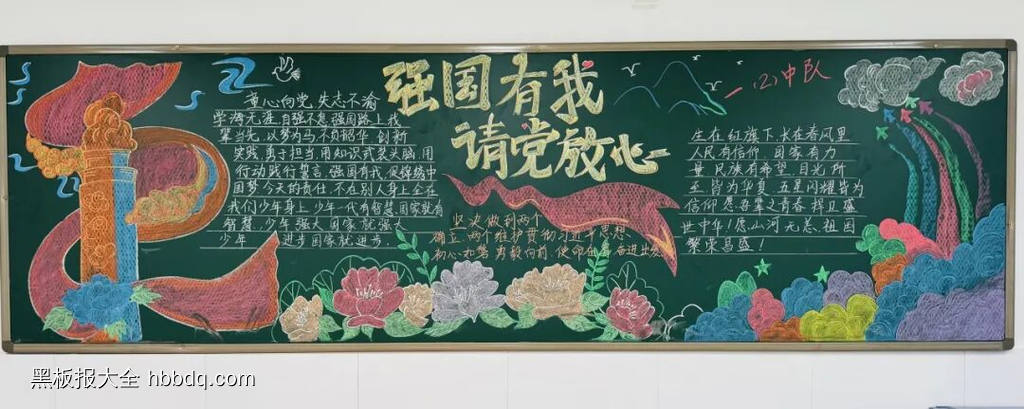 强国有我
请党放心
一(2)中队
童心向党 矢志不渝
学海无涯自强不息强国路上我
辈当先,以梦为马不负韶华 创新
实践,勇于担当,用知识武装头脑,用
行动践行誓言,强国有我,
国梦今天的责任,不在别人身上全在
我们少年身上,少年一代有智慧,国家就有
智慧,少年强大 国家就强大
少年 进步国家就进步.
坚决做到两个
确立,两个维护贯彻习近平思想
初心如磐 勇毅向前 使命在肩 奋进出发
生在红旗下,长在春风里
人民有信仰 国家有力
量 民族有希望,目光所
至,皆为华夏,五星闪耀皆为
信仰,愿吾辈之青春 捍卫盛
世中华!愿山河无恙,祖国
繁荣昌盛!
黑板报大全 hbbdq.com